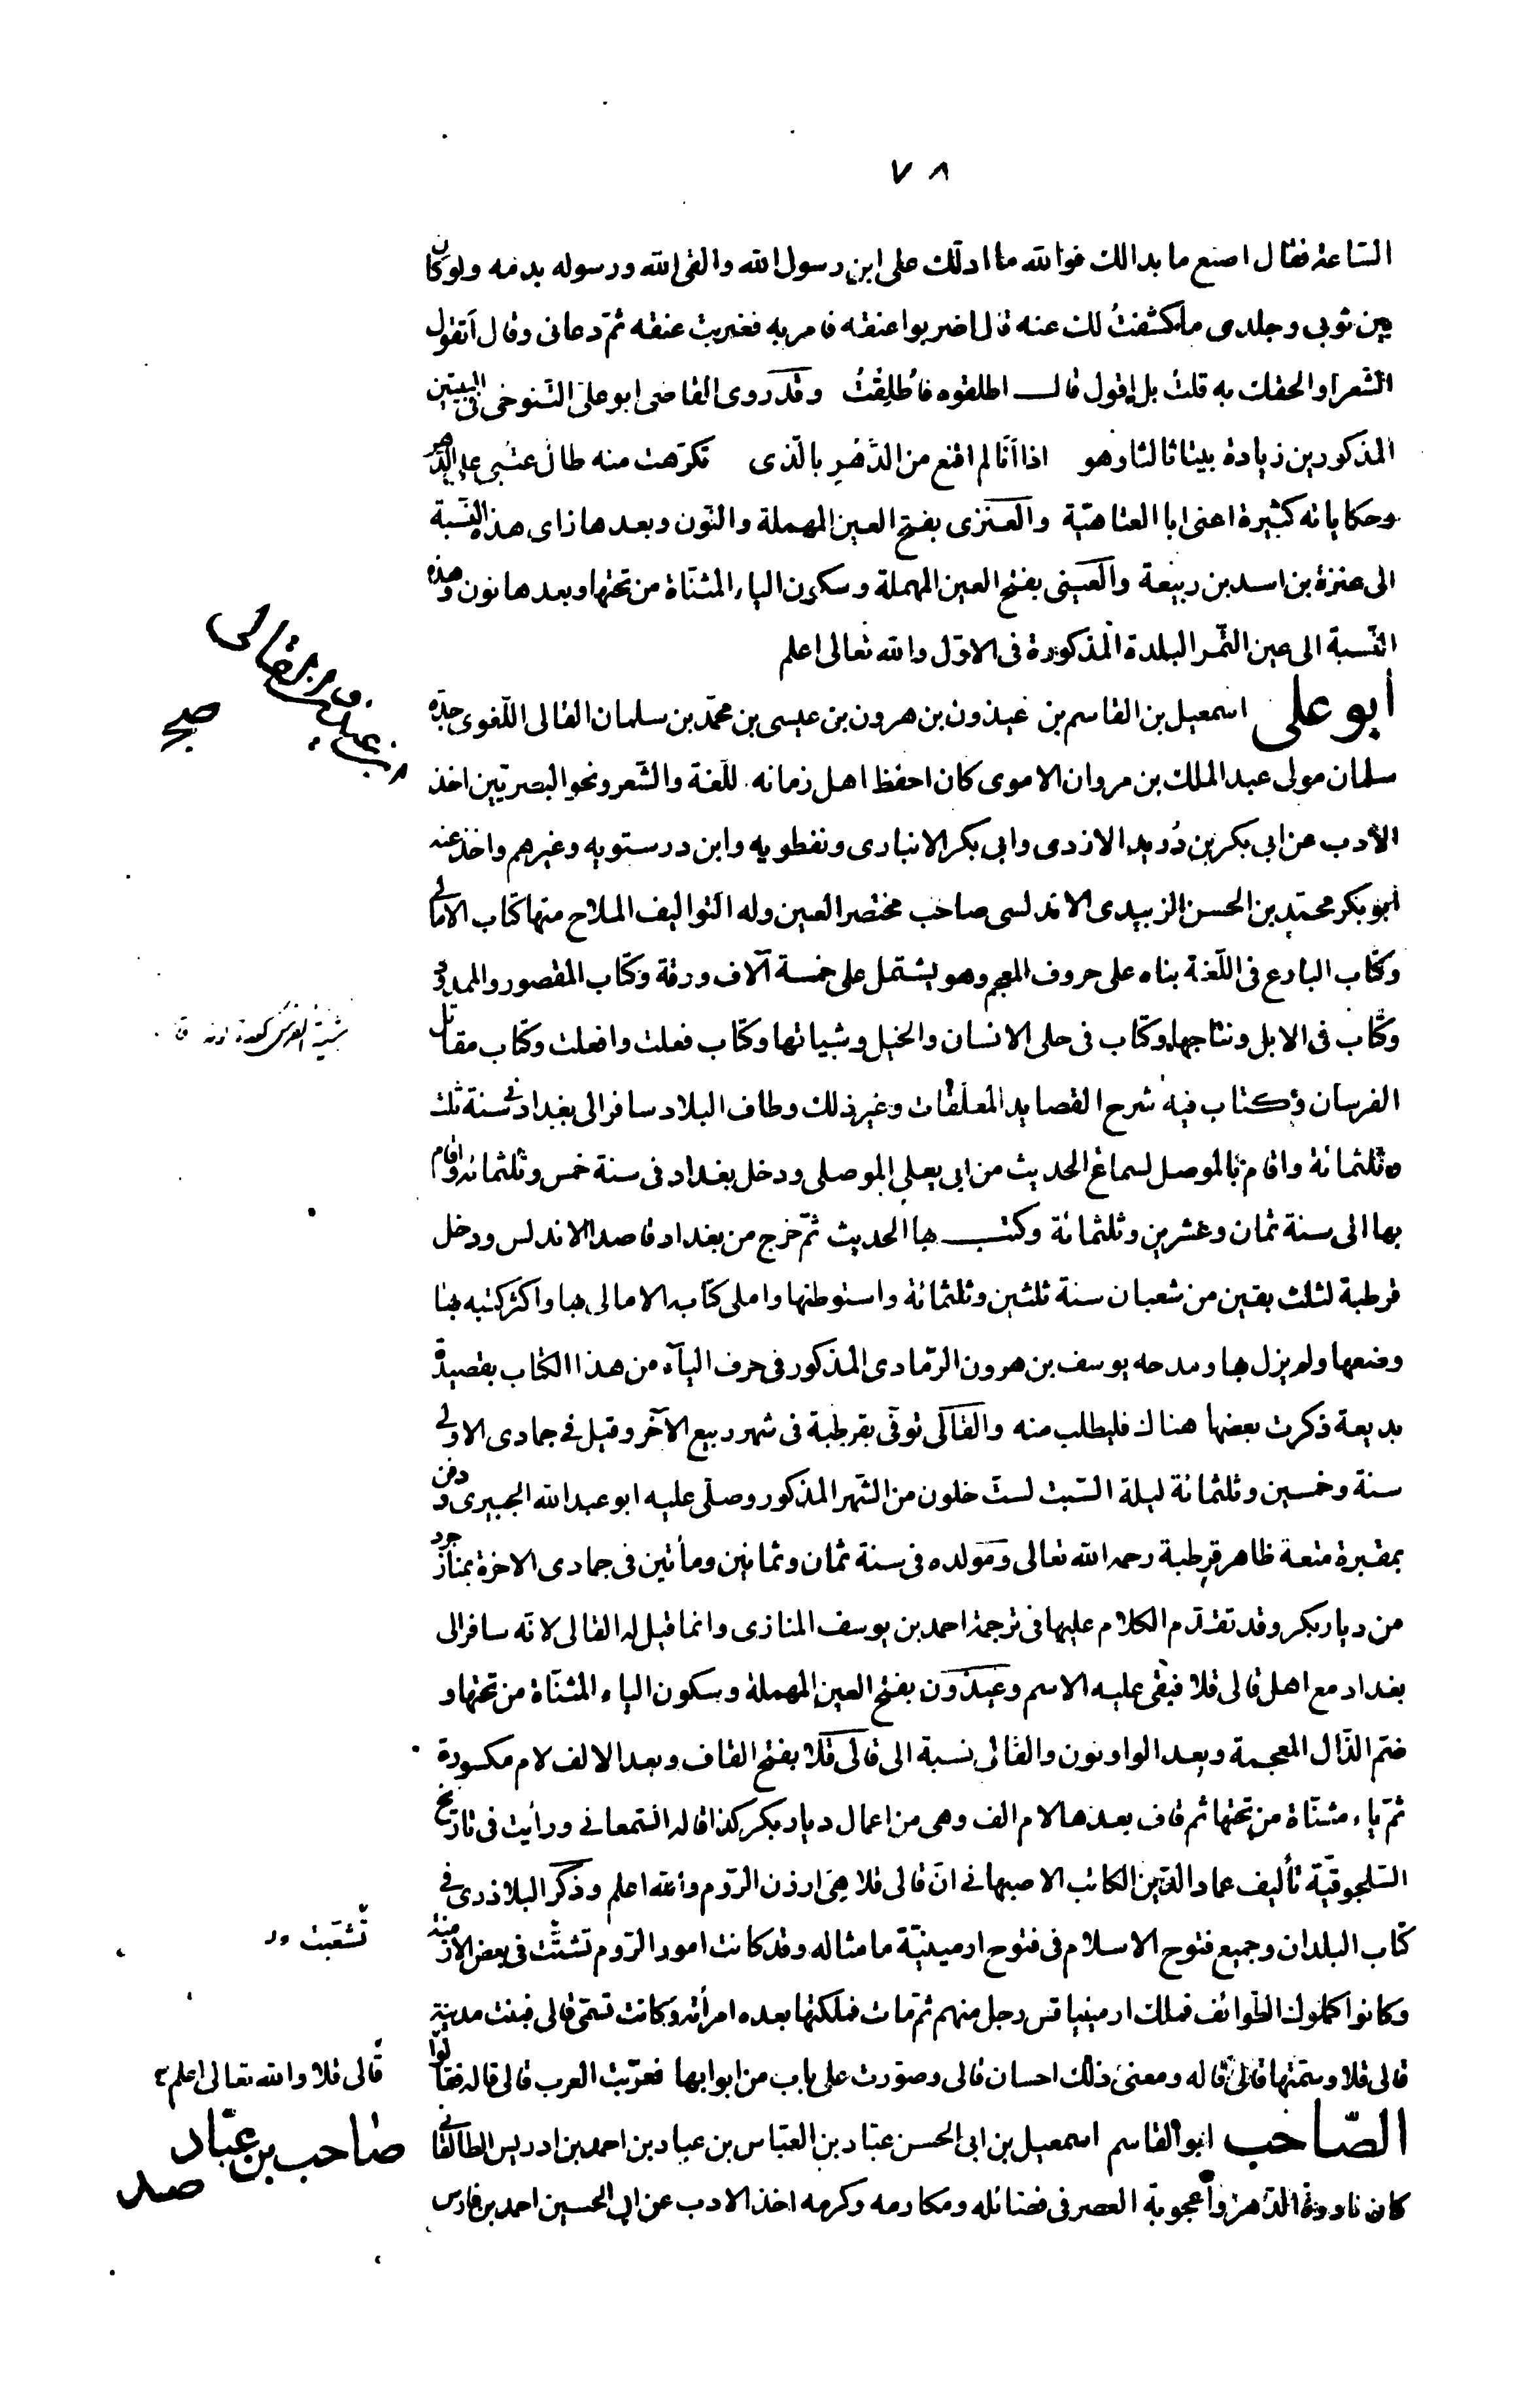 ٧٨
الساعة فقال اصنع ما بدا لك فوالله ما ادلّك على ابن رسول الله والقى الله ورسوله بدمه ولو كان
بين ثوبى وجلدى ما كشفتُ لك عنه قال اضربوا عنقه فامر به فضربت عنقه ثمّ دعانى وقال أتقول
الشعر او الحقك به قلت بل اقول قال اطلقوه فأُطلِقتُ وقد روى القاضى ابو علىّ التنوخى فى البيتين
المذكورين زيادة بيتا ثالثا وهو اذا أنا لم اقنع من الدّهر بالّذى تكرّهت منه طال عتبى على الدّهر
وحكاياته كثيرة اعنى ابا العتاهيّة والعنزى بفتح العين المهملة والنّون وبعدها زاى هذه النّسبة
الى عنزة بن اسد بن ربيعة والعينى بفتح العين المهملة وسكون الياء المثنّاة من تحتها وبعدها نون وهذه
النّسبة الى عين التّمر البلدة المذكورة فى الاوّل والله تعالى اعلم
أبو على اسمعيل بن القاسم بن عيذون بن هرون بن عيسى بن محمّد بن سلمان القالى اللّغوى جدّه
سلمان مولى عبد الملك بن مروان الاموى كان احفظ اهل زمانه للّغة والشّعر ونحو البصريّين اخذ
الأدب عن ابى بكر بن دُريد الازدى وابى بكر الانبارى ونفطويه وابن درستويه وغيرهم واخذ عنه
ابو بكر محمّد بن الحسن الزبيدى الاندلسى صاحب مختصر العين وله التواليف الملاح منها كتاب الامالى
وكتاب البارع فى اللّغة بناه على حروف المعجم وهو يشتمل على خمسة آلاف ورقة وكتاب المقصور والممدود
وكتاب فى الابل ونتاجها وكتاب فى حلى الانسان والخيل وشياتها وكتاب فعلت وافعلت وكتاب مقاتل
الفرسان وكتاب فيه شرح القصايد المعلّقات وغير ذلك وطاف البلاد سافر الى بغداد فى سنة ثلث
وثلثمائة واقام بالموصل لسماع الحديث من ابى يعلى الموصلى ودخل بغداد فى سنة خمس وثلثمائة واقام
بها الى سنة ثمان وعشرين وثلثمائة وكتب بها الحديث ثمّ خرج من بغداد قاصدا الاندلس ودخل
قرطبة لثلث بقين من شعبان سنة ثلثين وثلثمائة واستوطنها واملى كتابه الامالى بها واكثر كتبه بها
وضعها ولم يزل بها ومدحه يوسف بن هرون الرّمادى المذكور فى حرف اليآء من هذا الكتاب بقصيدة
بديعة ذكرت بعضها هناك فليطلب منه والقالى توفّى بقرطبة فى شهر ربيع الآخر وقيل فى جمادى الاولى
سنة وخمسين وثلثمائة ليلة السّبت لستّ خلون من الشّهر المذكور وصلّى عليه ابو عبد الله الجبيرى ودفن
بمقبرة متعة ظاهر قرطبة رحمه الله تعالى ومولده فى سنة ثمان وثمانين ومأتين فى جمادى الاخرة بمنازجرد
من ديار بكر وقد تقدّم الكلام عليها فى ترجمة احمد بن يوسف المنازى وانما قيل له القالى لانّه سافر الى
بغداد مع اهل قالى قلا فبقى عليه الاسم وعيذون بفتح العين المهملة وسكون الياء المثنّاة من تحتها و
ضمّ الذّال المعجمة وبعد الواو نون والقالى نسبة الى قالى قلا بفتح القاف وبعد الالف لام مكسورة
ثمّ ياء مثنّاة من تحتها ثم قاف بعدها لام الف وهى من اعمال ديار بكر كذا قاله السّمعانى ورأيت فى تاريخ
السّلجوقيّة تأليف عماد الدّين الكاتب الاصبهانى انّ قالى قلا هى ارزن الرّوم والله اعلم وذكر البلاذرى فى
كتاب البلدان وجميع فتوح الاسلام فى فتوح ارمينيّة ما مثاله وقد كانت امور الرّوم تشتّت فى بعض الازمنة
وكانوا كملوك الطّوائف فملك ارمينياقس رجل منهم ثمّ مات فملكتها بعده امرأته وكانت تسمّى قالى فبنت مدينة
قالى قلا وسمّتها قالى قاله ومعنى ذلك احسان قالى وصوّرت على باب من ابوابها فعرّبت العرب قالى قاله فقالوا
الصّاحب ابو القاسم اسمعيل بن ابى الحسن عبّاد بن العبّاس بن عباد بن احمد بن ادريس الطالقانى
كان نادرة الدّهر وأعجوبة العصر فى فضائله ومكارمه وكرمه اخذ الادب عن ابى الحسين احمد بن فارس
القالى
صح
تشعّبت
قالى قلا والله تعالى اعلم
صاحب بن عبّاد